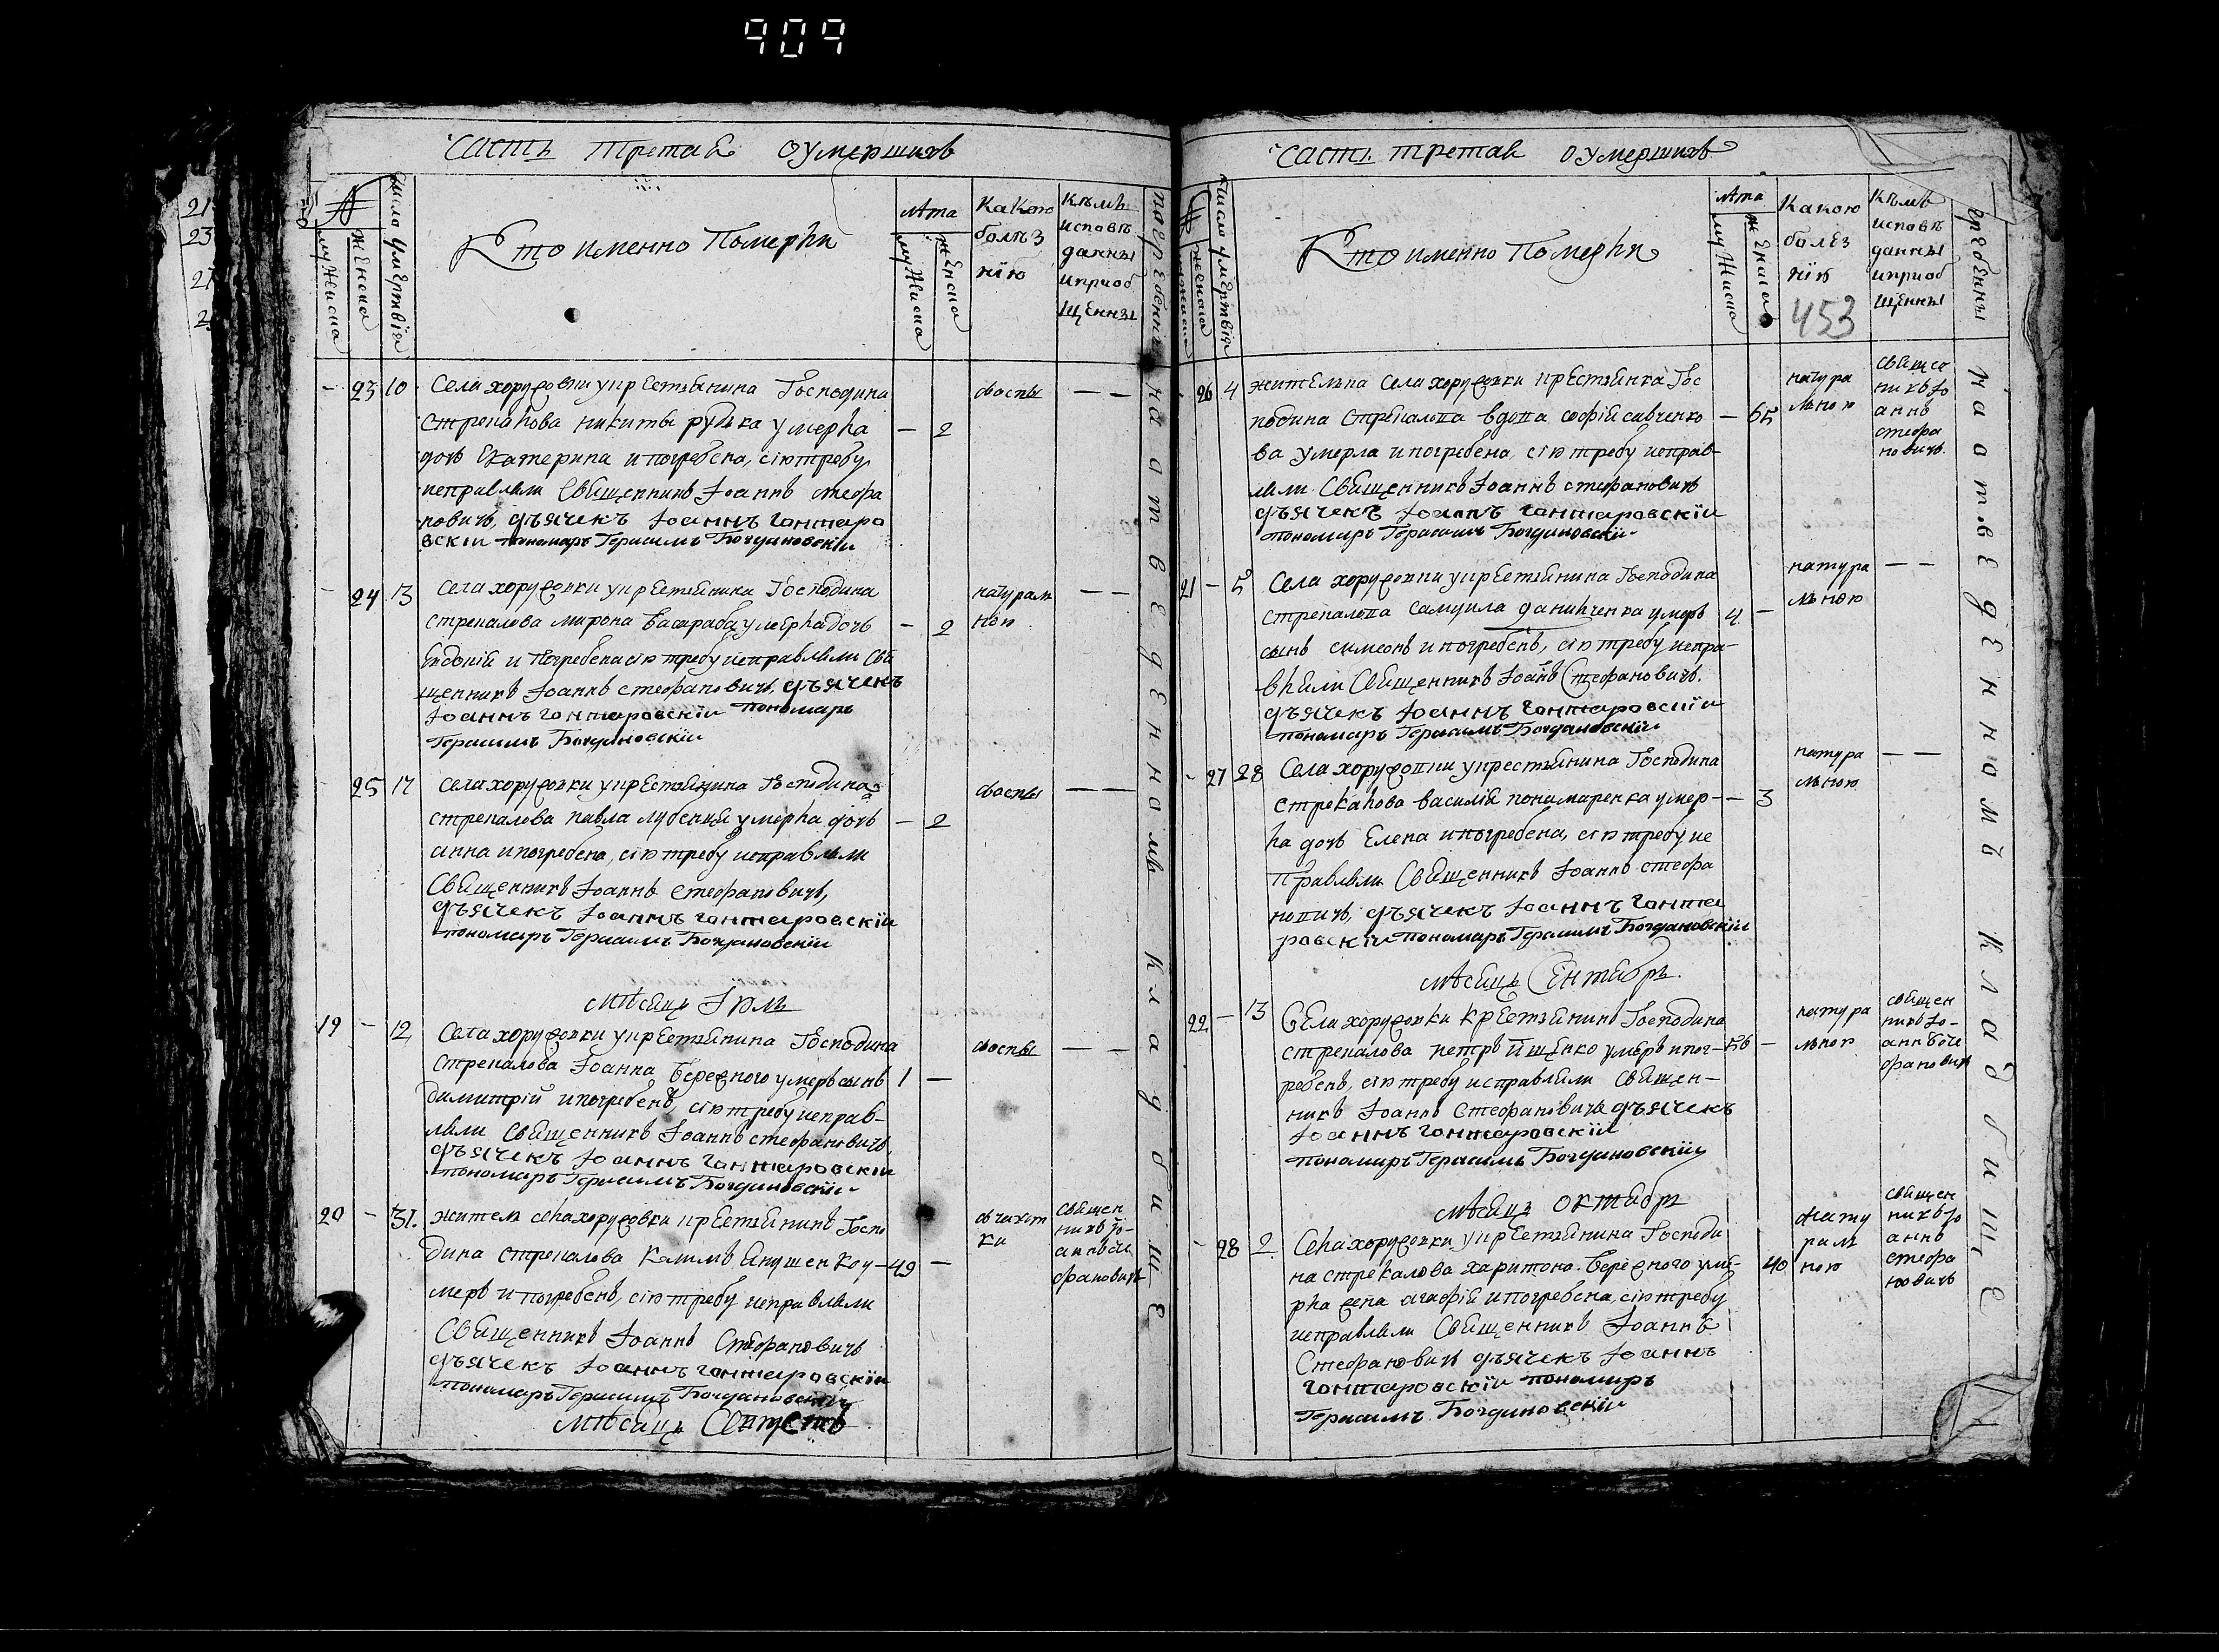 909
21
23
часть третая о умершихъ
№
мужиска
женска
числа умертвія
Кто именно Померли
лѣта
мужиска
женска
Какою
болѣз
нію
Кѣмъ
исповѣ
данны
и приоб
щенны
погребенны
на отведенномъ кладбище
– 23 10 Села хоружовки у крестьянина Господина
Стрекалова никиты рудька умерла – 2
дочь Екатерина и погребена, сію требу
исправляли Священникъ Іоаннъ стефа
новичъ, дъячекъ Іоаннъ Гонтаро
вскіи пономарь Герасимъ Богдановскіи
ѿ воспы – –
– 24 13 Села хоружовки у крестьянина Господина
стрекалова мирона басараба умерла дочь – 2
Евдокія и погребена сію требу исправляли Свя
щенникъ Іоаннъ стефановичъ, дъячекъ
Іоаннъ Гонтаровскіи пономарь
Герасимъ Богдановскіи
натураль
ною – –
25 17 Села хоружовки у крестьянина Господина
стрекалова павла умерла дочь – 2
анна и погребена, сію требу исправляли
Священникъ Іоаннъ стефановичъ,
дъячекъ Іоаннъ Гонтаровскіи
пономарь Герасимъ Богдановскіи
ѿ воспы – –
мѣсяцъ Іюль
19 – 12 Села хоружовки у крестьянина Господина
Стрекалова Іоанна Бережного умеръ сынъ 1 –
димитрій и погребенъ, сію требу исправ-
ляли Священникъ Іоаннъ стефановичъ,
дъячекъ Іоаннъ Гонтаровскіи
пономарь Герасимъ Богдановскіи
ѿ воспы – –
20 – 31. житель села хоружовки крестьянинъ Госпо
дина стрекалова Янушенко у- 49 –
меръ и погребенъ, сію требу исправляли
Священникъ Іоаннъ Стефановичъ
дъячекъ Іоаннъ Гонтаровскіи
пономарь Герасимъ Богдановскіи
ѿ чахот
ки
священ
никъ Іо-
аннъ сте
фановичъ
мѣсяцъ
часть третая о умершихъ
№
мужиска
женска
число умертвія
Кто именно Померли
лѣта
мужиска
женска
Какою
болѣз
нію
453
Кѣмъ
исповѣ
данны
и приоб
щенны
погребенны
на отведенномъ кладбище
26 4 жителька села хоружовки крестьянка Гос
подина Стрекалова вдова софія савченко – 65
ва умерла и погребена, сію требу исправ-
ляли Священникъ Іоаннъ стефановичъ
дъячекъ Іоаннъ Гонтаровскіи
пономарь Герасимъ Богдановскіи
натура
льною
священ
никъ Іо
аннъ
стефа
новичъ
21 – 5 Села хоружовки у крестьянина Господина
стрекалова Самуила данильченка умеръ 4 –
сынъ симеонъ и погребенъ, сію требу испра-
вляли Священникъ Іоаннъ Стефановичъ.
дъячекъ Іоаннъ Гонтаровскіи
пономарь Герасимъ Богдановскіи
натура
льною – –
– 27 28 Села хоружовки у крестьянина Господина
стрекалова василія пономаренка умер- – 3
ла дочь Елена и погребена, сію требу ис
правляли Священникъ Іоаннъ стефа
новичъ, дъячекъ Іоаннъ Гонта
ровскіи пономарь Герасимъ Богдановскіи
натура
льною – –
мѣсяцъ Сентябрь.
22 – 13 Села хоружовки крестьянинъ Господина
стрекалова петръ умеръ и пог- 56 –
ребенъ, сію требу исправляли Священ-
никъ Іоаннъ Стефановичъ дъячекъ
Іоаннъ Гонтаровскіи
пономарь Герасимъ Богдановскіи
натура
льною
священ
никъ Іо-
аннъ сте
фановичъ
мѣсяцъ октябрь
– 28 2 Села хоружовки у крестьянина Господи
на стрекалова харитона Бережного уме- 40
рла жена агафія и погребена, сію требу
исправляли Священникъ Іоаннъ
Стефановичъ дъячекъ Іоаннъ
Гонтаровскіи пономарь
Герасимъ Богдановскіи
нату
раль
ною
священ
никъ Іо
аннъ
стефа
новичъ